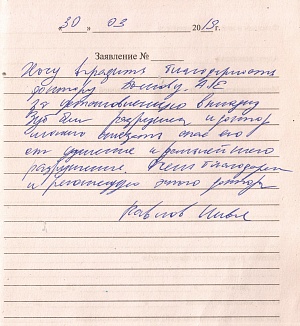 30 » 03 2019г.
Заявление №
Хочу выразить благодарность
доктору А.Е
за установленную
зуб был разрушен и доктор
спасти его
от удаления и дальнейшего
разрушения. Очень благодарен
и рекомендую этого доктора
Павлов